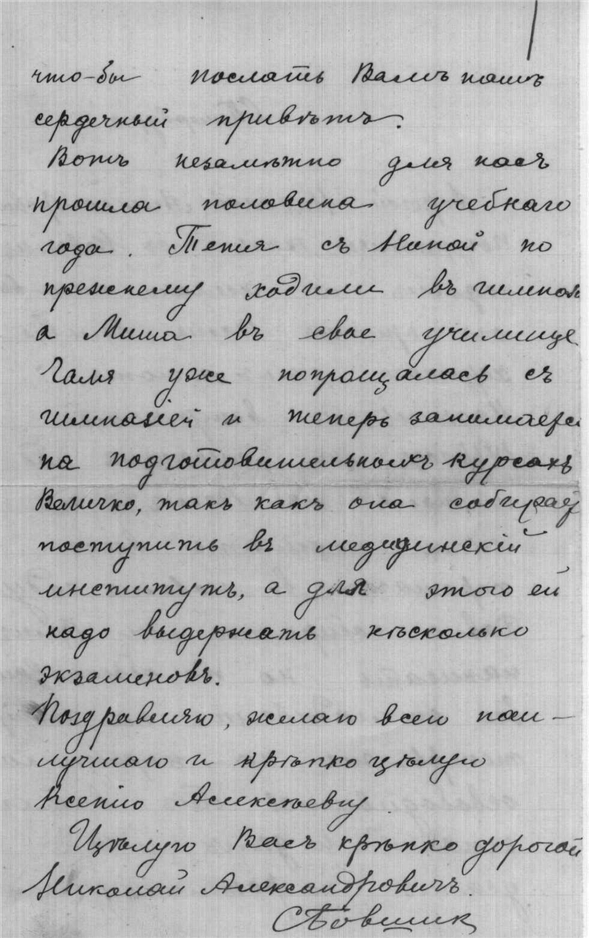 что-бы послать Вамъ нашъ
сердечный привѣтъ.
Вотъ незамѣтно для насъ
прошла половина учебнаго
года. Теня съ Ниной по
прежнему ходили въ гимназ
а Миша въ свое училище
Галя уже попрощалась съ
гимназіей и теперь занимается
на подготовительныхъ курсахъ
Величко, такъ какъ она собирает
поступить въ медицинскій
институтъ, а для этого ей
надо выдержать нѣсколько
экзаменовъ.
Поздравляю, желаю всего наи-
лучшаго и крѣпко цѣлую
Ксенію Алексѣевну
Цѣлую Васъ крѣпко дорогой
Николай Александровичъ.